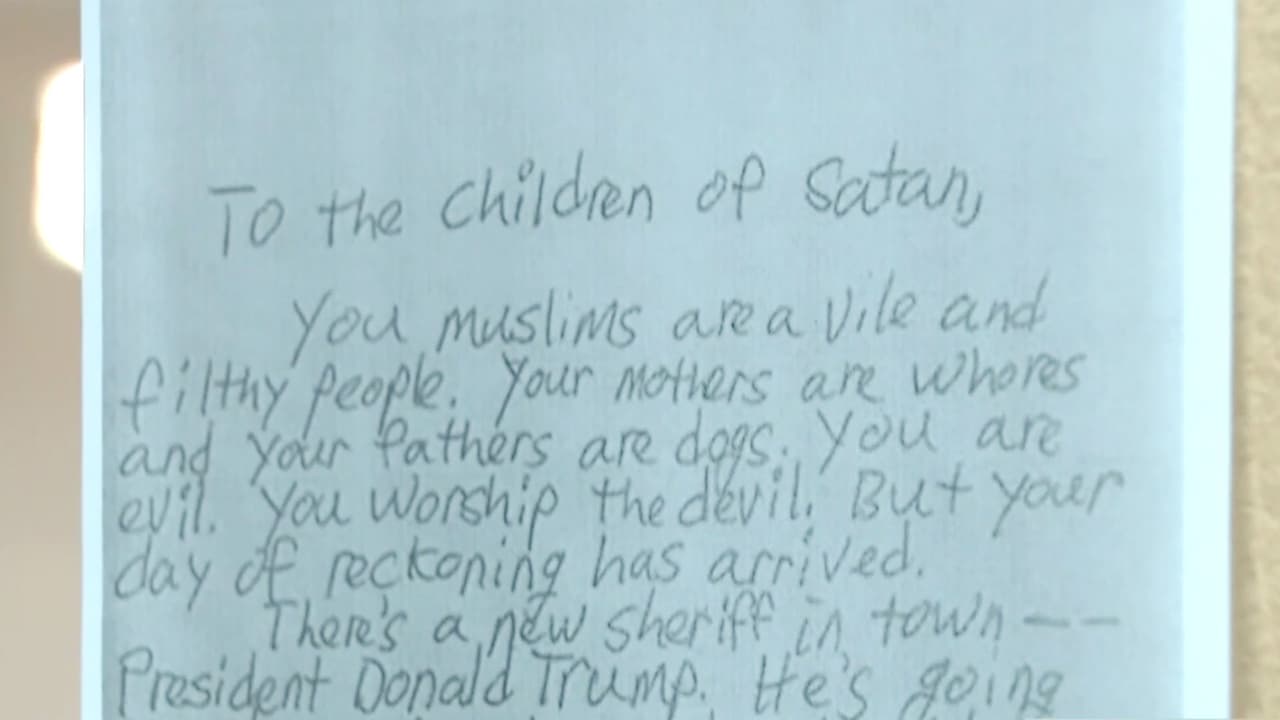 To the children of Satan,
You muslims are a vile and
filthy people. Your mothers are whores
and your fathers are dogs. You are
evil. You worship the devil. But your
day of reckoning has arrived.
There's a new sheriff in town --
President Donald Trump. He's going